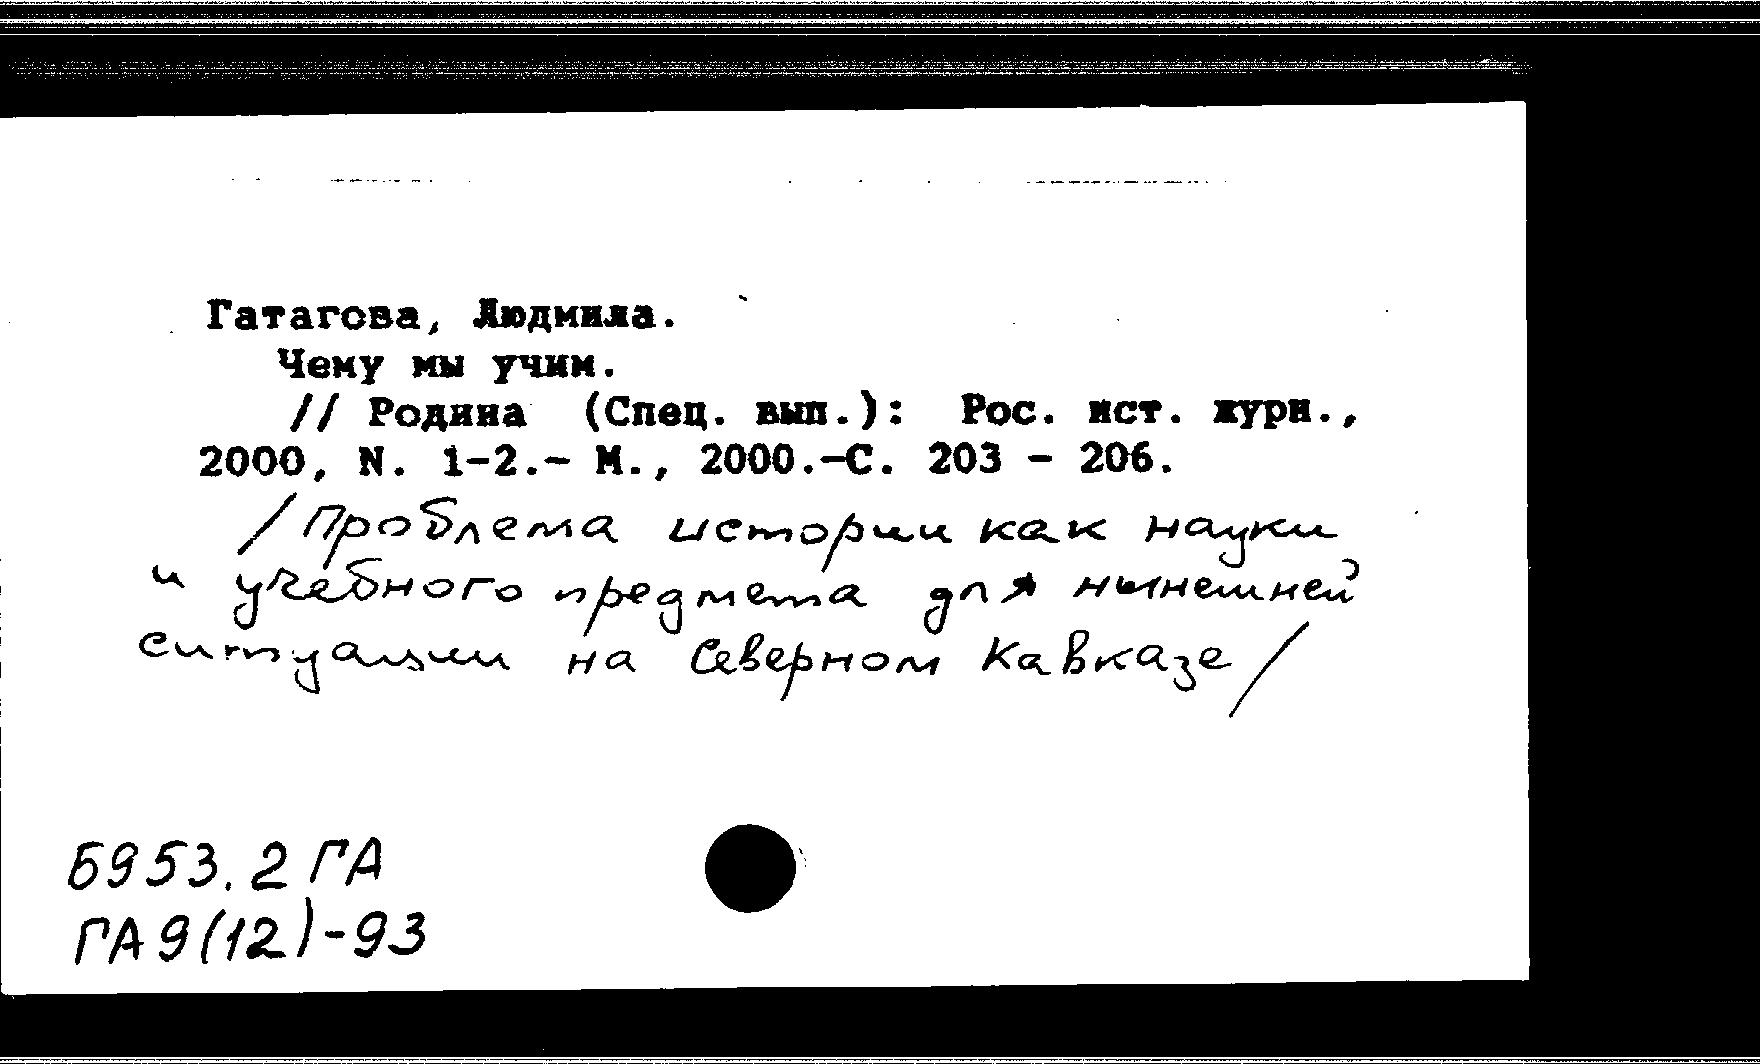 Гатагова, Людмила.
Чему мы учим.
// Родина (Спец. вып.): Рос. ист. журн.,
2000, N. 1-2.- М., 2000.-С. 203 - 206.
/Проблема истории как науки
и учебного предмета для нынешней
ситуации на Северном Кавказе/
Б953.2 ГА
ГА9(12)-93